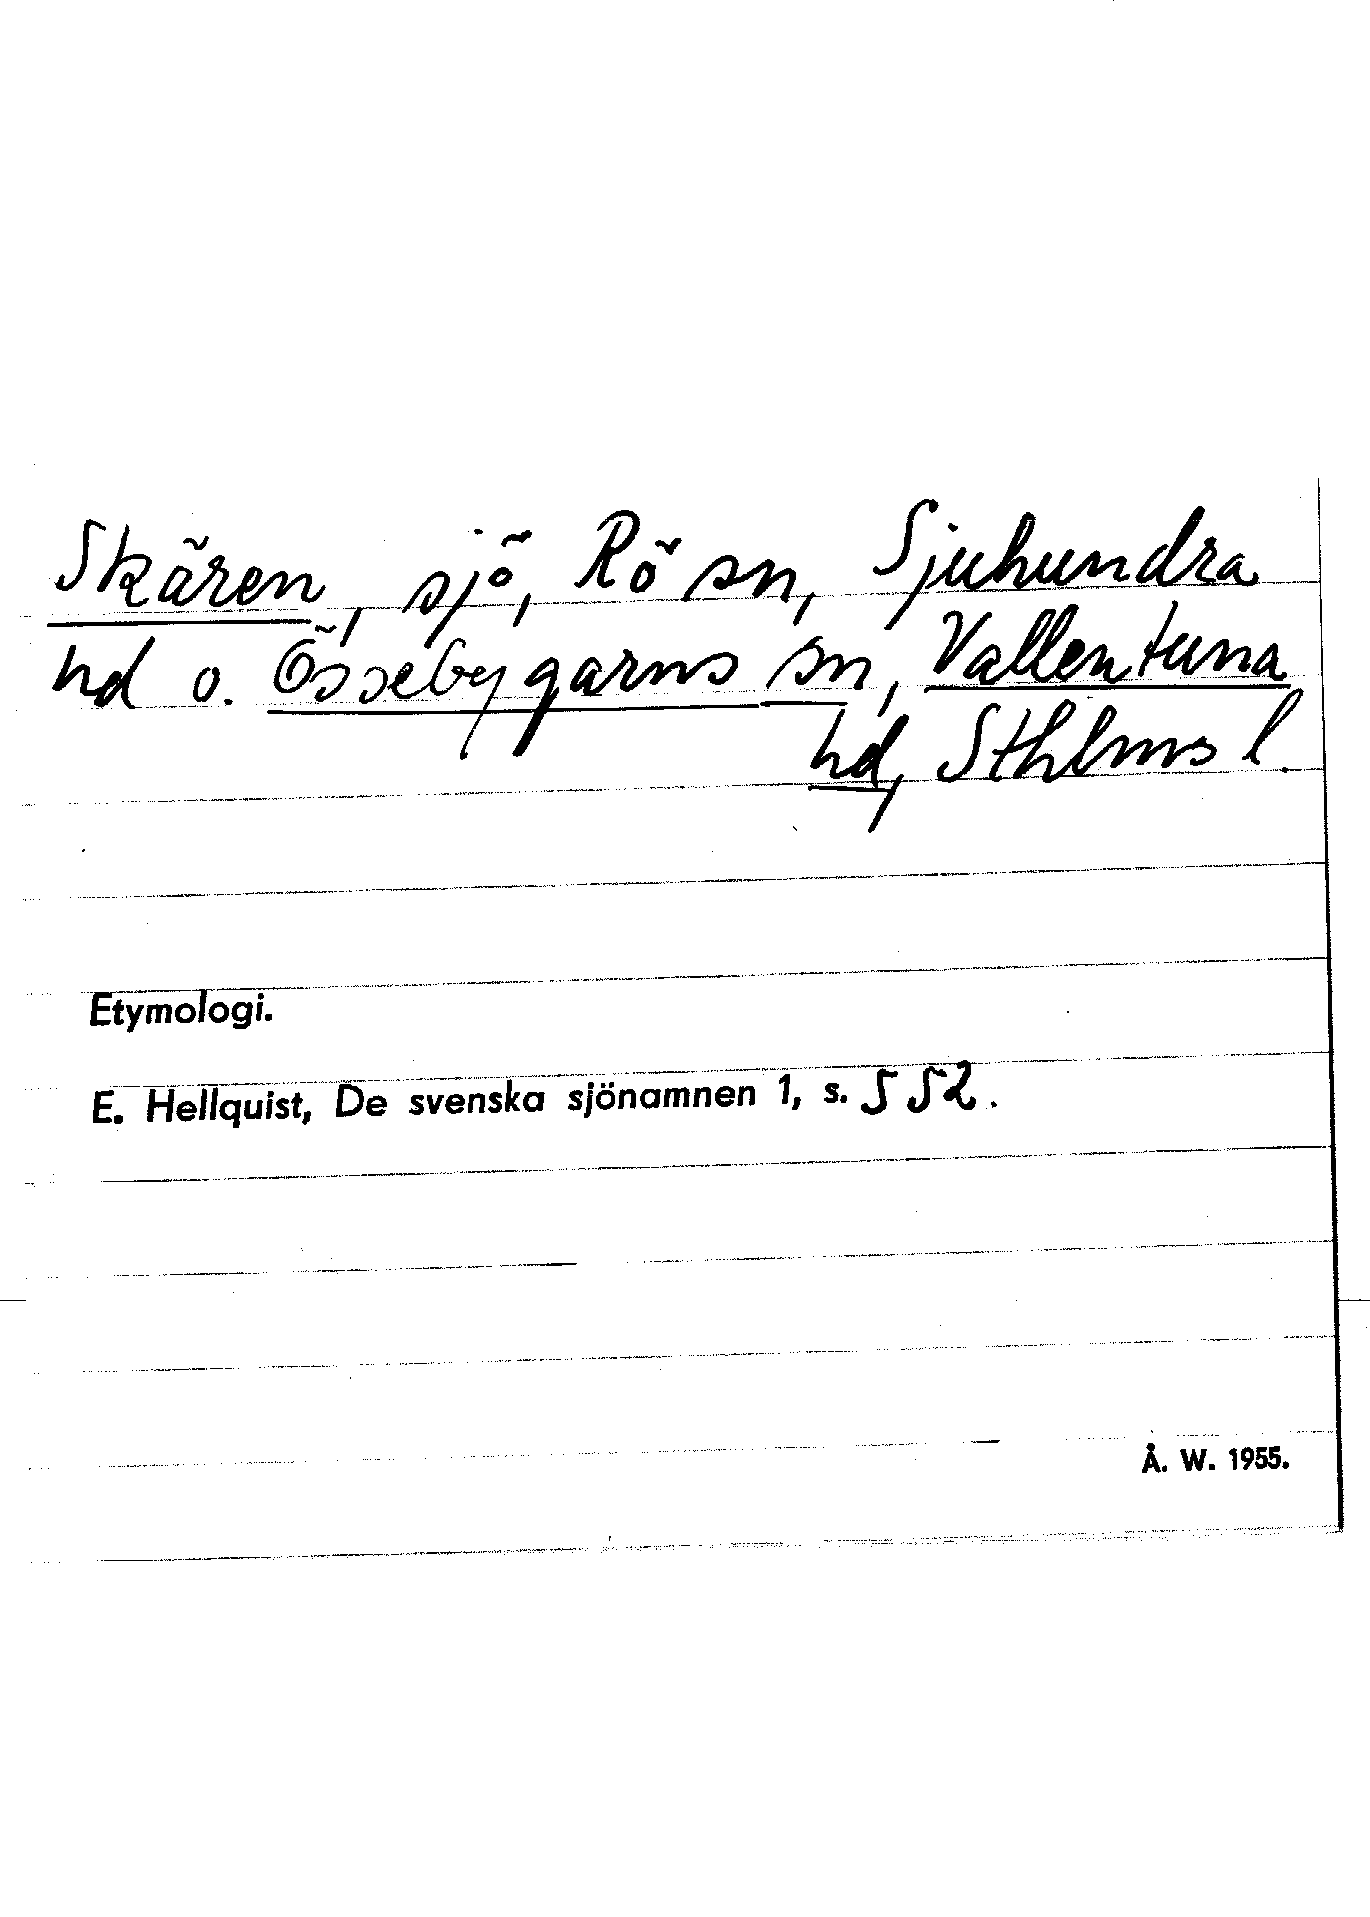 Skären, sjö, Rö sn, Sjuhundra
hd o. Össebygarns sn, Vallentuna
hd, Sthlms l.
Etymologi.
E. Hellquist, De svenska sjönamnen 1, s. 552.
Å. W. 1955.